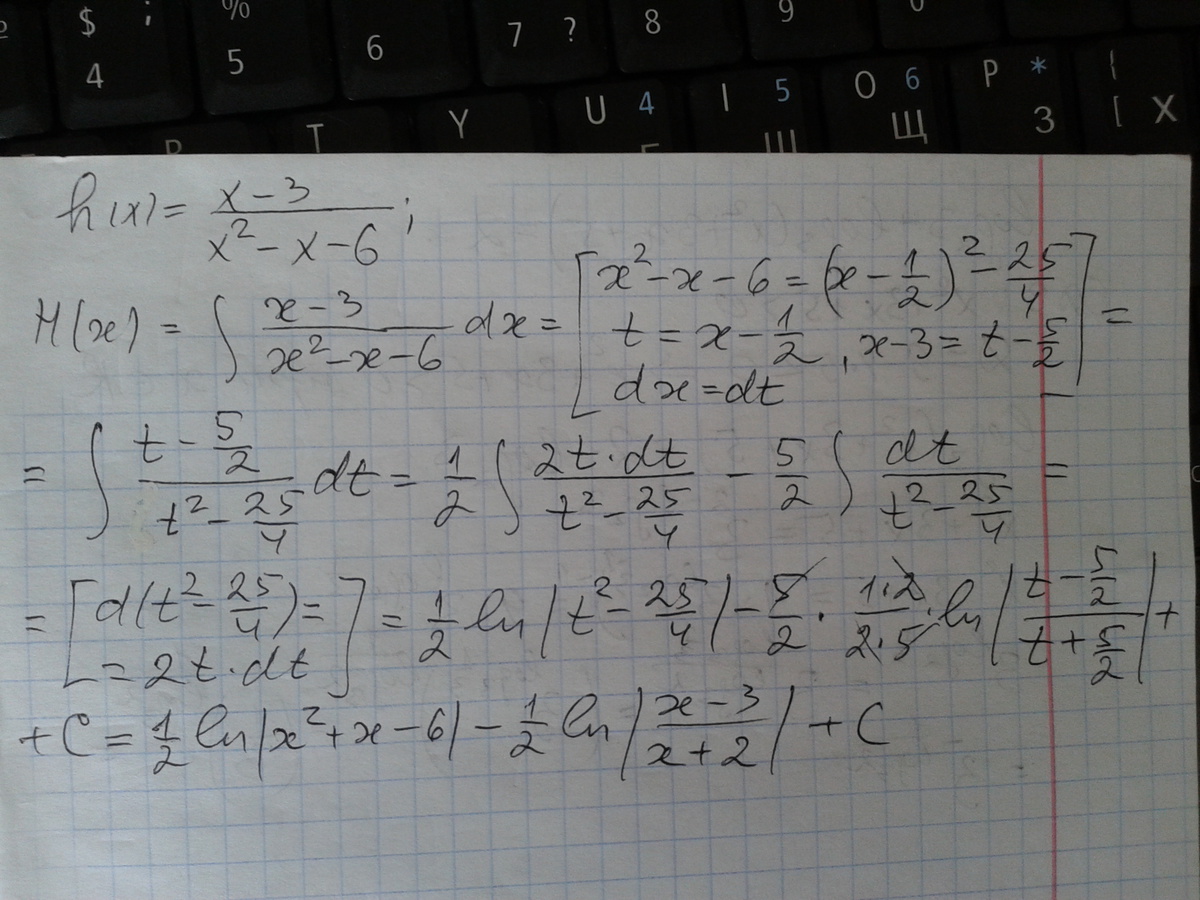 $ ; % 9 0
4 5 6 7 ? 8
R T Y U 4 I 5 O 6 P * {
Г Ш Щ З [ Х
h(x) = \frac{x-3}{x^2-x-6};
H(x) = \int \frac{x-3}{x^2-x-6} dx = [x^2-x-6 = (x-\frac{1}{2})^2 - \frac{25}{4}
t = x-\frac{1}{2}, x-3 = t-\frac{5}{2}
dx = dt] =
= \int \frac{t-\frac{5}{2}}{t^2-\frac{25}{4}} dt = \frac{1}{2} \int \frac{2t·dt}{t^2-\frac{25}{4}} - \frac{5}{2} \int \frac{dt}{t^2-\frac{25}{4}} =
= [d(t^2-\frac{25}{4}) =
= 2t·dt] = \frac{1}{2} ln|t^2-\frac{25}{4}| - \frac{5}{2} · \frac{1·2}{2·5} · ln|\frac{t-\frac{5}{2}}{t+\frac{5}{2}}| +
+ C = \frac{1}{2} ln|x^2+x-6| - \frac{1}{2} ln|\frac{x-3}{x+2}| + C